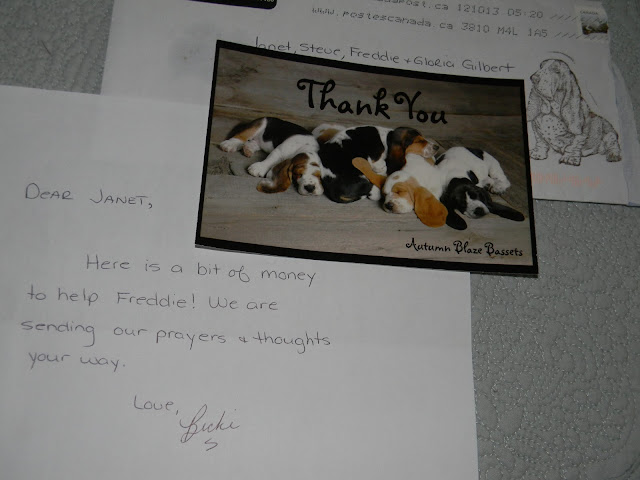 www.postescanada.ca 3810 M4L 1A5
121013 05:20
Janet, Steve, Freddie + Gloria Gilbert
Thank You
Autumn Blaze Bassets
Dear Janet,
Here is a bit of money
to help Freddie! We are
sending our prayers + thoughts
your way.
Love,
Bicki